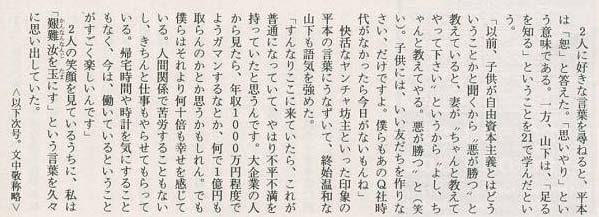 ２人に好きな言葉を尋ねると、平本
は「恕」と答えた。「思いやり」とい
う意味である。一方、山下は、「足る
を知る」ということを21で学んだとい
う。
「以前、子供が自由資本主義とはどう
いうことかと聞くから〝悪が勝つ〟と
教えていると、妻が〝ちゃんと教えて
やって下さい〟というから〝よし、ち
ゃんと教えてやる。悪が勝つ〟と（笑
い）。子供には、いい友だちを作りな
さい、だけですよ。僕らもあのＱ社時
代がなかったら今日がないもんね」
快活なヤンチャ坊主といった印象の
平本の言葉にうなずいて、終始温和な
山下も語気を強めた。
「すんなりここに来ていたら、これが
普通になっていて、やはり不平不満を
持っていたと思うんです。大企業の人
から見たら、年収１０００万円程度で
ようガマンするなとか、何で１億円も
取らんのかとか思うかもしれん。でも
僕らはそれより何十倍も幸せを感じて
いる。人間関係で苦労することもない
し、きちんと仕事もやらせてもらって
いる。帰宅時間や時計を気にすること
もなく、今は、働いているということ
がすごく楽しいんです」
２人の笑顔を見ているうちに、私は
「艱難汝を玉にす」という言葉を久々
かんなんなんじ たま
に思い出していた。
＜以下次号。文中敬称略＞